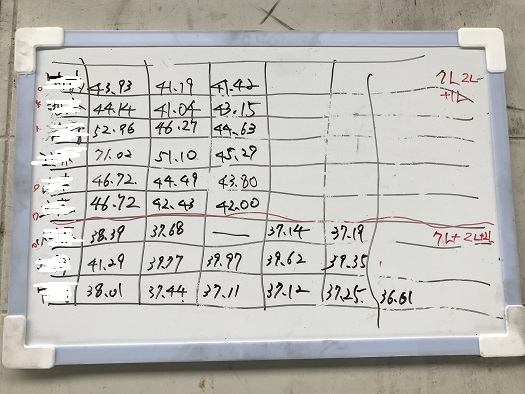 43.93 41.79 41.42 クL 2L
44.14 41.04 43.15 +1L
52.96 46.27 44.63
71.02 51.10 45.29
46.72 44.49 43.80
46.72 42.43 42.00
38.39 37.68 — 37.14 37.19 クL+2L+2L
41.29 39.97 39.62 39.35
38.01 37.44 37.11 37.12 37.25 36.61